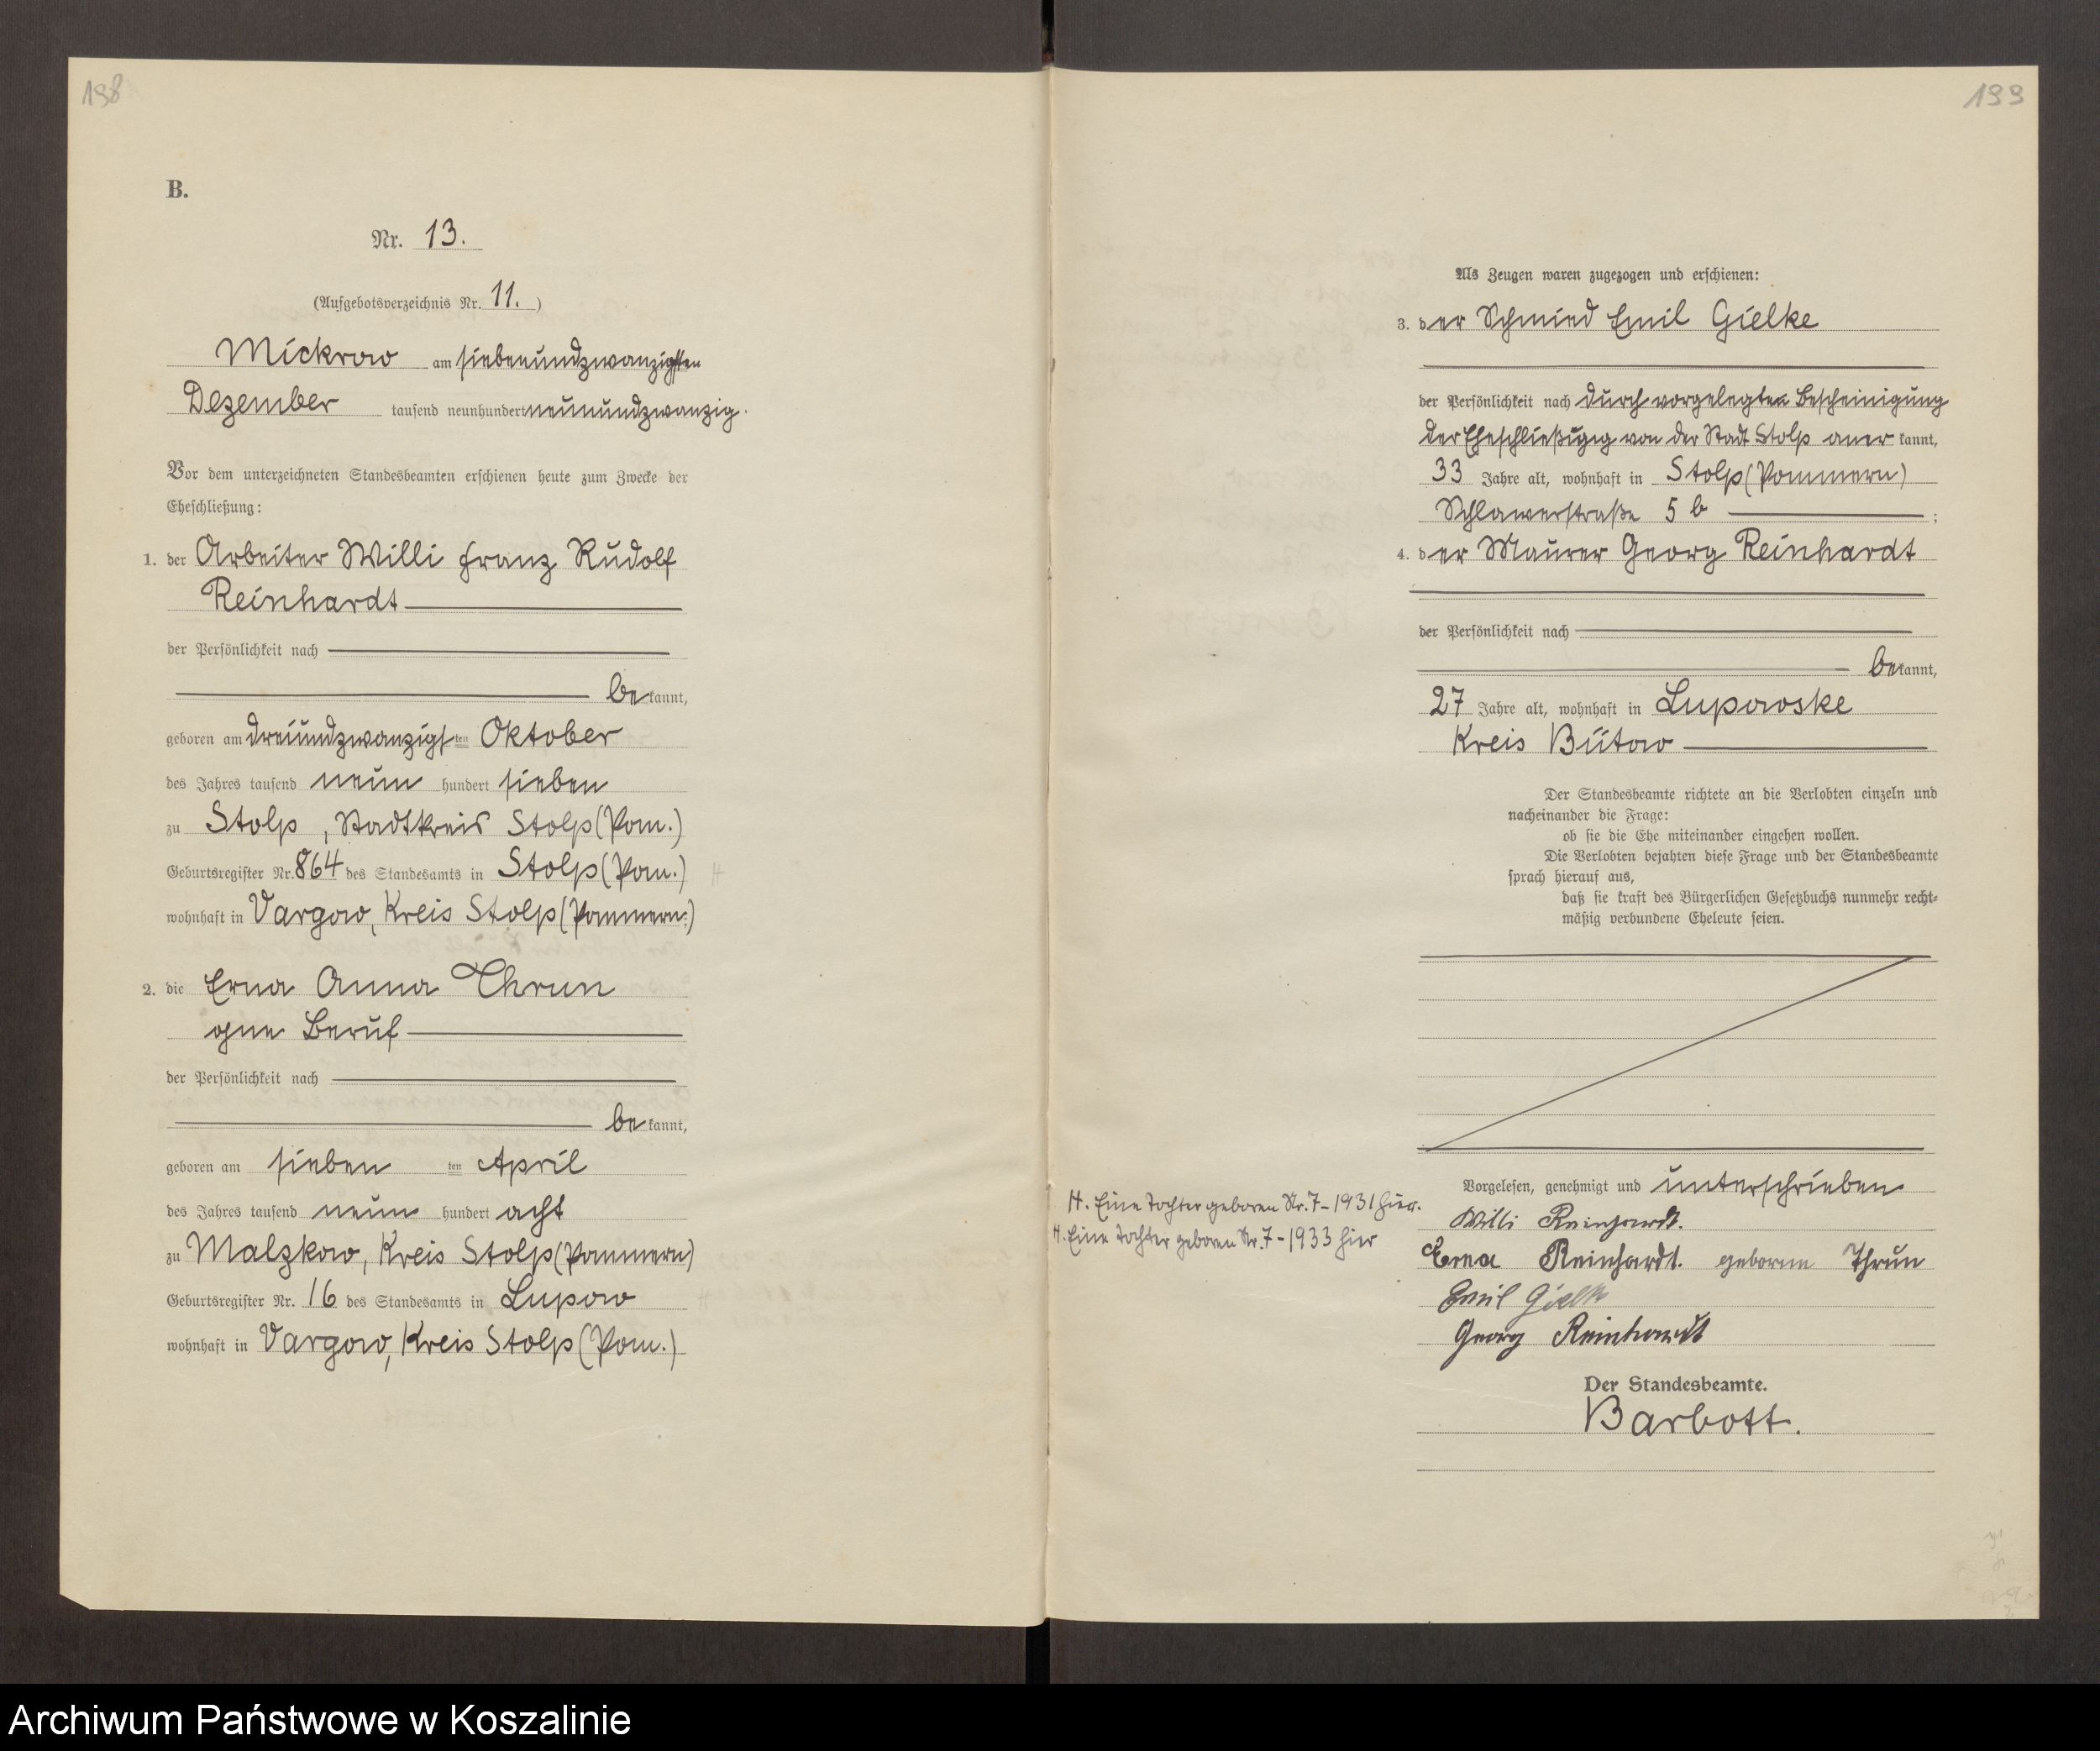 198
199
B.
Nr. 13.
(Aufgebotsverzeichnis Nr. 11.)
Mickrow am siebenundzwanzigsten
Dezember tausend neunhundert neunundzwanzig.
Vor dem unterzeichneten Standesbeamten erschienen heute zum Zwecke der
Eheschließung:
1. der Arbeiter Willi Franz Rudolf
Reinhardt
der Persönlichkeit nach
be kannt,
geboren am dreiundzwanzigsten Oktober
des Jahres tausend neun hundert sieben
zu Stolp, Stadtkreis Stolp (Pom.)
Geburtsregister Nr. 864 des Standesamts in Stolp (Pom.)
wohnhaft in Vargow, Kreis Stolp (Pommern.)
2. die Erna Anna Thrun
ohne Beruf
der Persönlichkeit nach
be kannt,
geboren am sieben ten April
des Jahres tausend neun hundert acht
zu Malzkow, Kreis Stolp (Pommern)
Geburtsregister Nr. 16 des Standesamts in Lupow
wohnhaft in Vargow, Kreis Stolp (Pom.)
Als Zeugen waren zugezogen und erschienen:
3. der Schmied Emil Gielke
der Persönlichkeit nach durch vorgelegten Bescheinigung
der Eheschließung von der Stadt Stolp aner kannt,
33 Jahre alt, wohnhaft in Stolp (Pommern)
Schlawerstraße 5 b ;
4. der Maurer Georg Reinhardt
der Persönlichkeit nach
be kannt,
27 Jahre alt, wohnhaft in Lupowske
Kreis Bütow
Der Standesbeamte richtete an die Verlobten einzeln und
nacheinander die Frage:
ob sie die Ehe miteinander eingehen wollen.
Die Verlobten bejahten diese Frage und der Standesbeamte
sprach hierauf aus,
daß sie kraft des Bürgerlichen Gesetzbuchs nunmehr recht-
mäßig verbundene Eheleute seien.
Vorgelesen, genehmigt und unterschrieben
H. Eine Tochter geboren Nr. 7-1931 hier.
H. Eine Tochter geboren Nr. 7-1933 hier
Willi Reinhardt.
Erna Reinhardt. geborene Thrun
Emil Gielke
Georg Reinhardt
Der Standesbeamte.
Barbott.
Archiwum Państwowe w Koszalinie